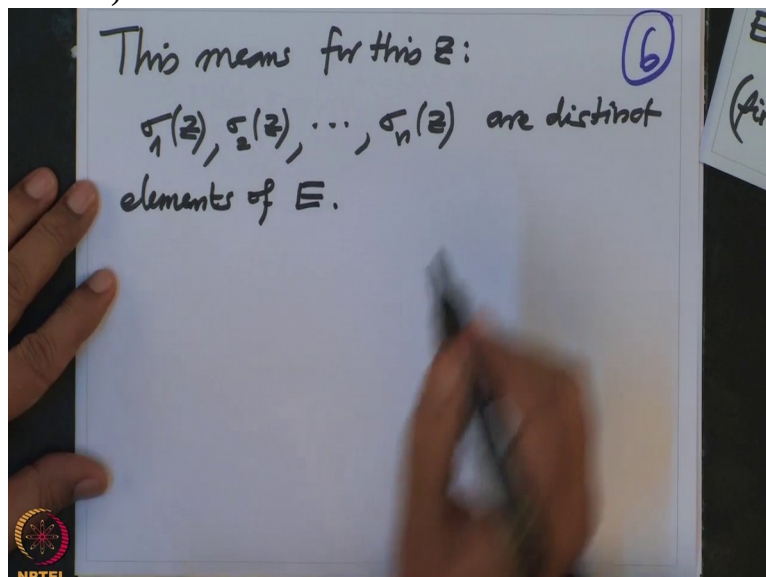 This means for this z:
6
σ₁(z), σ₂(z), ..., σₙ(z) are distinct
elements of E.
E
(fin
NPTEL